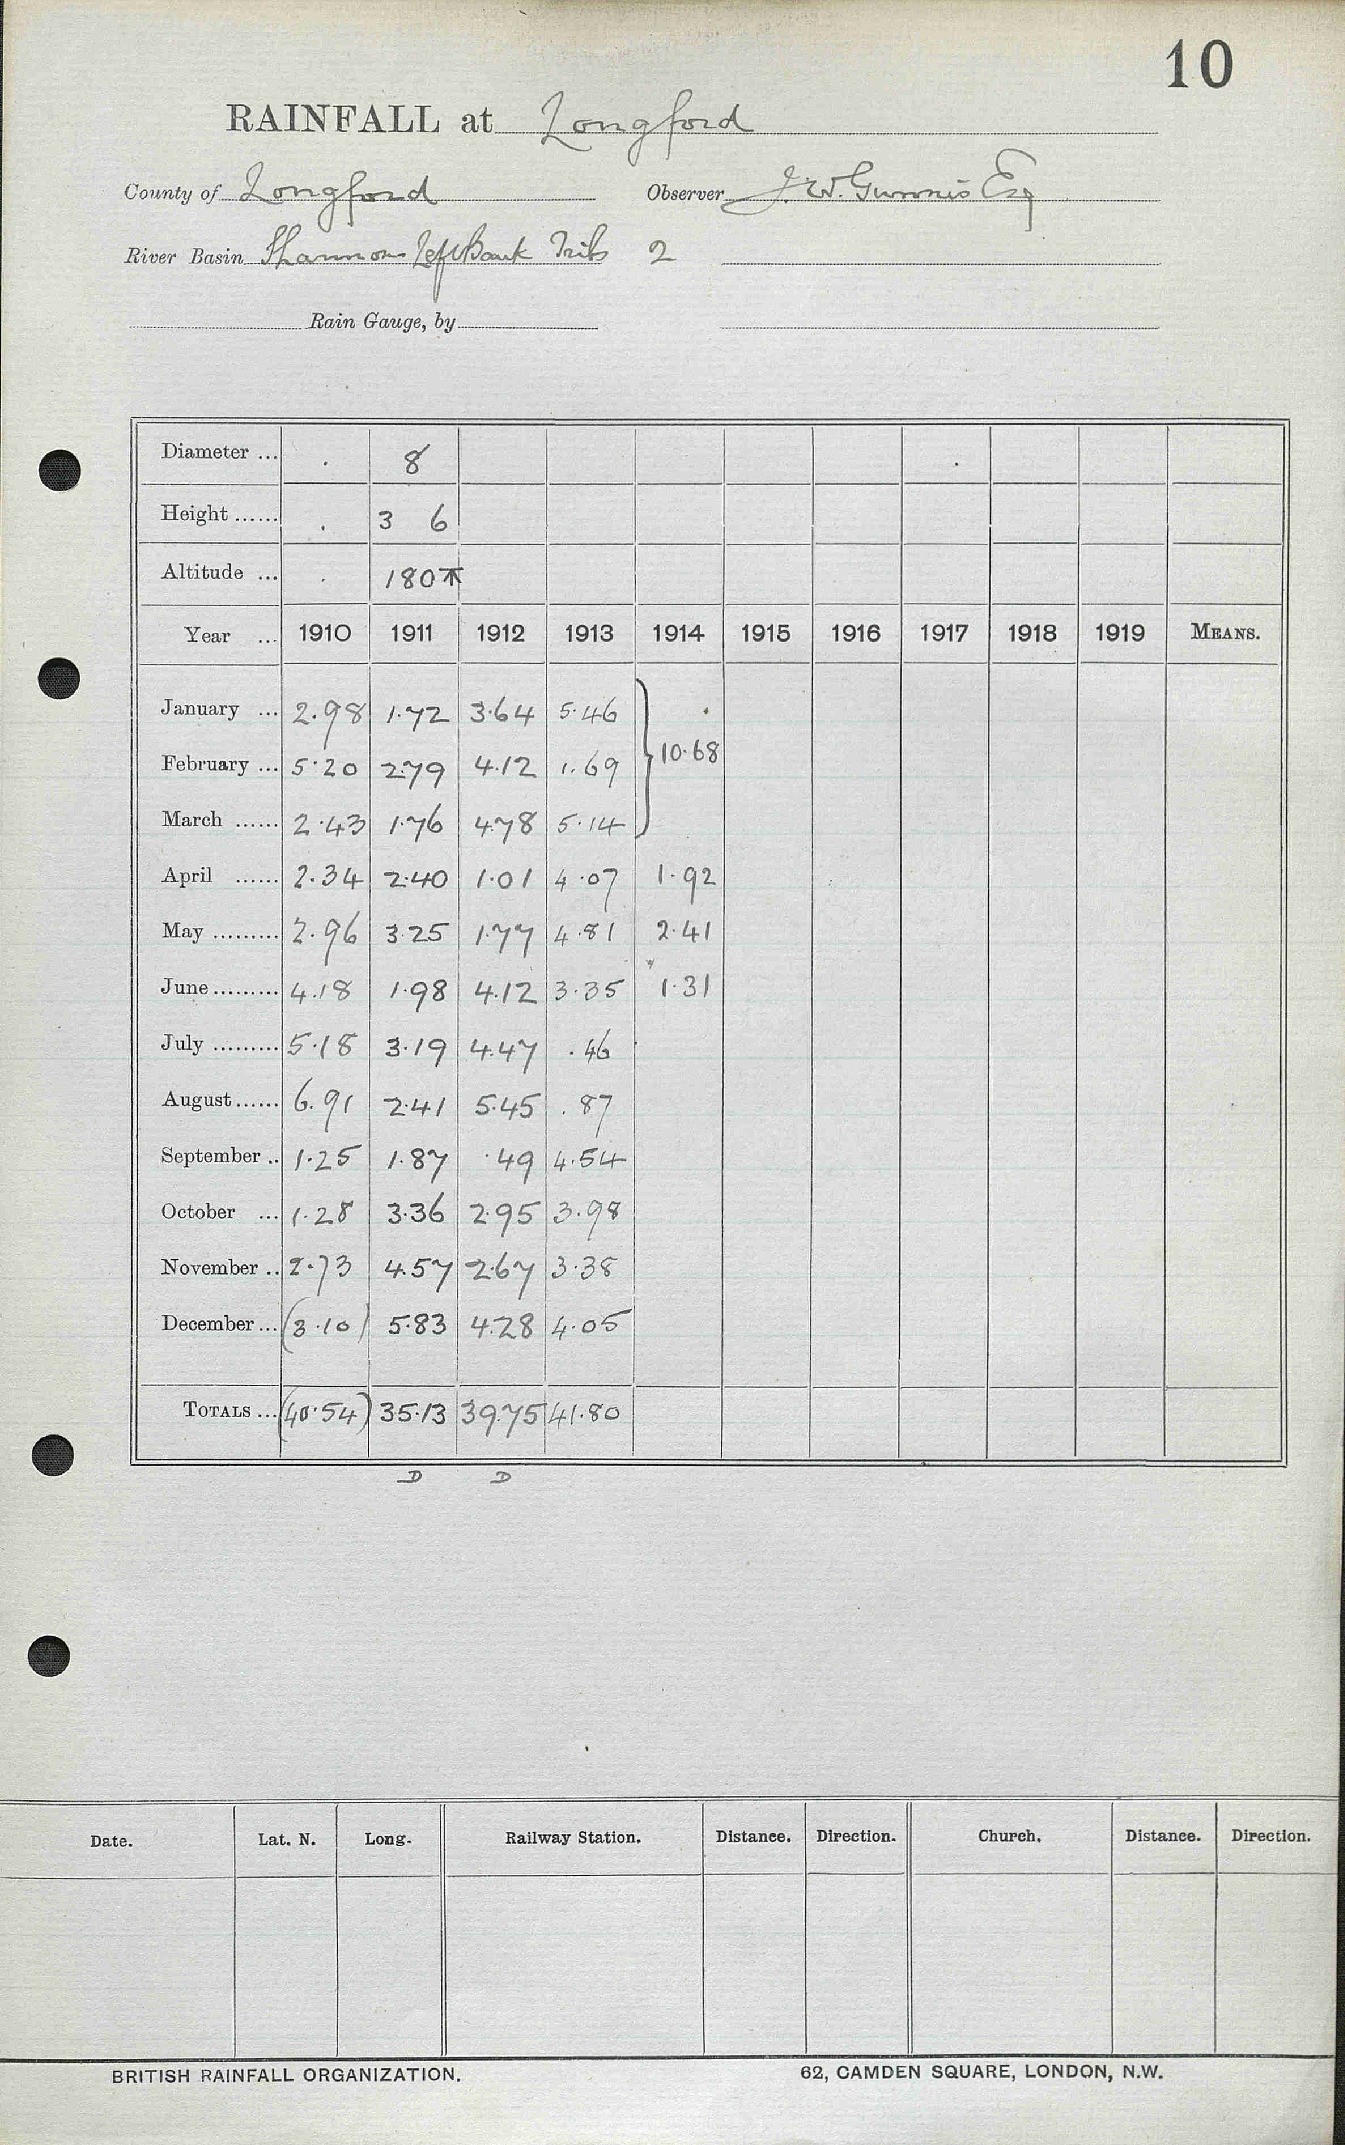 10
RAINFALL at Longford
County of Longford Observer J. W. Gunnis Esq
River Basin Shannon Left Bank Tribs 2
Rain Gauge, by
Diameter ... 8
Height ...... 3 6
Altitude ... 180
Year ... 1910 1911 1912 1913 1914 1915 1916 1917 1918 1919 MEANS.
January ... 2.98 1.72 3.64 5.46
February ... 5.20 2.79 4.12 1.69 10.68
March ...... 2.43 1.76 4.78 5.14
April ...... 2.34 2.40 1.01 4.07 1.92
May ......... 2.96 3.25 1.77 4.81 2.41
June ......... 4.18 1.98 4.12 3.35 1.31
July ......... 5.18 3.19 4.47 .46
August ...... 6.91 2.41 5.45 .87
September .. 1.25 1.87 .49 4.54
October ... 1.28 3.36 2.95 3.98
November .. 2.73 4.57 2.67 3.38
December ... (3.10) 5.83 4.28 4.05
TOTALS ... (40.54) 35.13 39.75 41.80
D D
Date. Lat. N. Long. Railway Station. Distance. Direction. Church. Distance. Direction.
BRITISH RAINFALL ORGANIZATION. 62, CAMDEN SQUARE, LONDON, N.W.